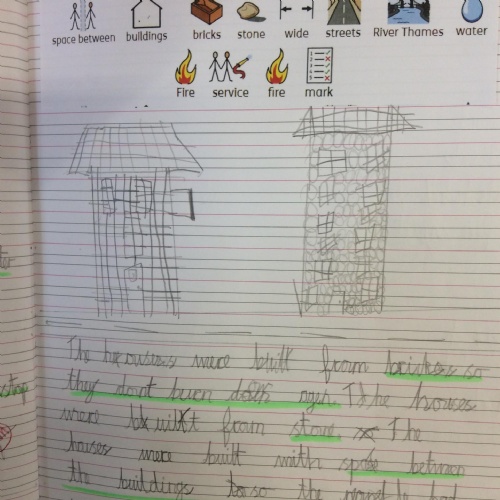 space between buildings bricks stone wide streets River Thames water
Fire service fire mark
The houses were built from brickes so
they dont buen down agh. The houses
were built from stone The
houses were built with space between
the buildings so the